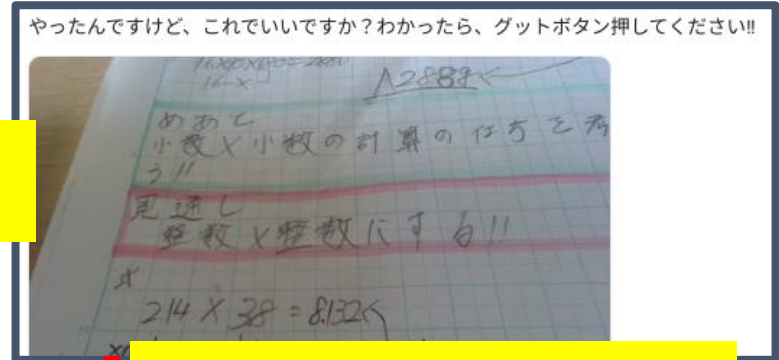 やったんですけど、これでいいですか？わかったら、グットボタン押してください!!
めあて
小数×小数の計算の仕方を考
う!!
見通し
整数×整数にする!!
式
214×38=8132